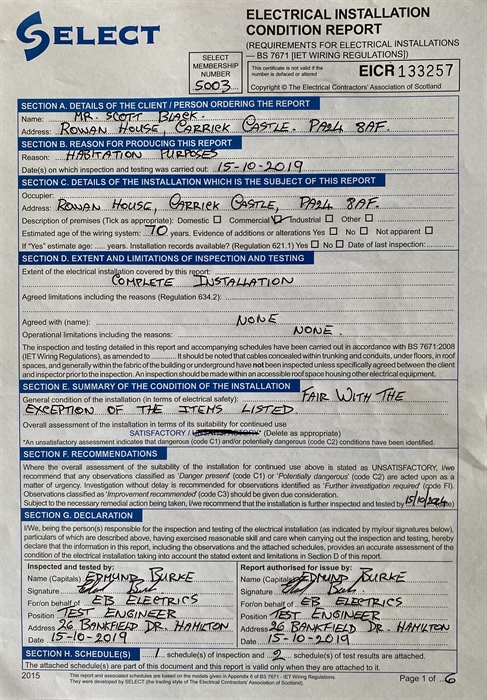 SELECT
ELECTRICAL INSTALLATION
CONDITION REPORT
(REQUIREMENTS FOR ELECTRICAL INSTALLATIONS
— BS 7671 [IET WIRING REGULATIONS])
SELECT
MEMBERSHIP
NUMBER
5003
This certificate is not valid if the
number is defaced or altered
EICR 133257
Copyright © The Electrical Contractors' Association of Scotland
SECTION A. DETAILS OF THE CLIENT / PERSON ORDERING THE REPORT
Name: MR. SCOTT BLACK.
Address: ROWAN HOUSE, CARRICK CASTLE. PA24 8AF.
SECTION B. REASON FOR PRODUCING THIS REPORT
Reason: HABITATION PURPOSES
Date(s) on which inspection and testing was carried out: 15-10-2019
SECTION C. DETAILS OF THE INSTALLATION WHICH IS THE SUBJECT OF THIS REPORT
Occupier:
Address: ROWAN HOUSE, CARRICK CASTLE, PA24 8AF.
Description of premises (Tick as appropriate): Domestic ☐ Commercial ☑ Industrial ☐ Other ☐
Estimated age of the wiring system: 70 years. Evidence of additions or alterations Yes ☐ No ☐ Not apparent ☐
If "Yes" estimate age: ...... years. Installation records available? (Regulation 621.1) Yes ☐ No ☐ Date of last inspection:
SECTION D. EXTENT AND LIMITATIONS OF INSPECTION AND TESTING
Extent of the electrical installation covered by this report:
COMPLETE INSTALLATION
Agreed limitations including the reasons (Regulation 634.2):
Agreed with (name): NONE
Operational limitations including the reasons: NONE.
The inspection and testing detailed in this report and accompanying schedules have been carried out in accordance with BS 7671:2008
(IET Wiring Regulations), as amended to ............ It should be noted that cables concealed within trunking and conduits, under floors, in roof
spaces, and generally within the fabric of the building or underground have not been inspected unless specifically agreed between the client
and inspector prior to the inspection. An inspection should be made within an accessible roof space housing other electrical equipment.
SECTION E. SUMMARY OF THE CONDITION OF THE INSTALLATION
General condition of the installation (in terms of electrical safety): FAIR WITH THE
EXCEPTION OF THE ITEMS LISTED.
Overall assessment of the installation in terms of its suitability for continued use
SATISFACTORY / UNSATISFACTORY* (Delete as appropriate)
*An unsatisfactory assessment indicates that dangerous (code C1) and/or potentially dangerous (code C2) conditions have been identified.
SECTION F. RECOMMENDATIONS
Where the overall assessment of the suitability of the installation for continued use above is stated as UNSATISFACTORY, I/we
recommend that any observations classified as 'Danger present' (code C1) or 'Potentially dangerous' (code C2) are acted upon as a
matter of urgency. Investigation without delay is recommended for observations identified as 'Further investigation required' (code FI).
Observations classified as 'Improvement recommended' (code C3) should be given due consideration.
Subject to the necessary remedial action being taken, I/we recommend that the installation is further inspected and tested by 15/10/2024
SECTION G. DECLARATION
I/We, being the person(s) responsible for the inspection and testing of the electrical installation (as indicated by my/our signatures below),
particulars of which are described above, having exercised reasonable skill and care when carrying out the inspection and testing, hereby
declare that the information in this report, including the observations and the attached schedules, provides an accurate assessment of the
condition of the electrical installation taking into account the stated extent and limitations in Section D of this report.
Inspected and tested by:
Name (Capitals) EDMUND BURKE
Signature
For/on behalf of EB ELECTRICS
Position TEST ENGINEER
Address 26 BANKFIELD DR. HAMILTON
Date 15-10-2019
Report authorised for issue by:
Name (Capitals) EDMUND BURKE
Signature
For/on behalf of EB ELECTRICS
Position TEST ENGINEER
Address 26 BANKFIELD DR. HAMILTON
Date 15-10-2019
SECTION H. SCHEDULE(S) 1 schedule(s) of inspection and 2 schedule(s) of test results are attached.
The attached schedule(s) are part of this document and this report is valid only when they are attached to it.
2015
This report and associated schedules are based on the models given in Appendix 6 of BS 7671 - IET Wiring Regulations.
They were developed by SELECT (the trading style of The Electrical Contractors' Association of Scotland).
Page 1 of 6